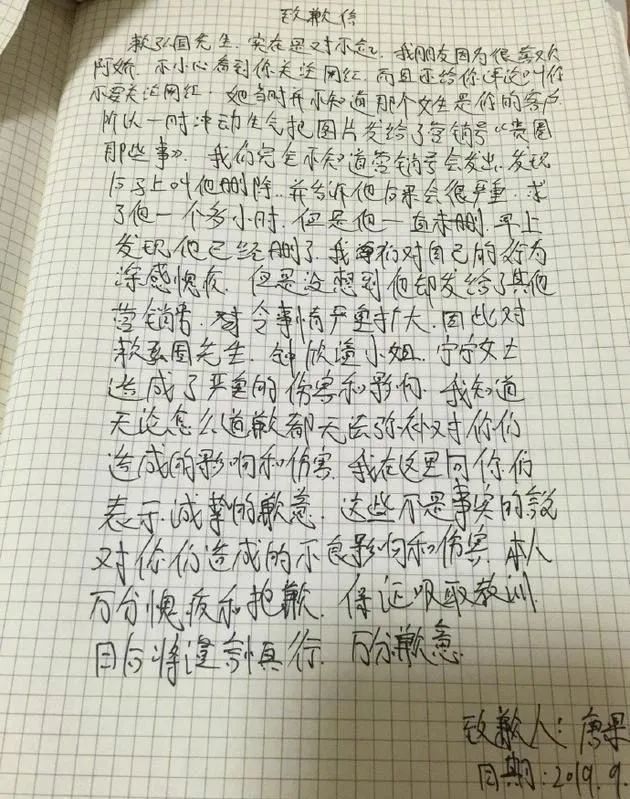 致歉信
赖弘国先生. 实在是对不起. 我朋友因为很喜欢
阿娇. 不小心看到你关注网红. 而且还给你评论叫你
不要关注网红. 她当时并不知道那个女生是你的客户
所以一时冲动生气把图片发给了营销号《贵圈
那些事》. 我们完全不知道营销号会发出. 发现
后马上叫他删除. 并告诉他后果会很严重. 求
了他一个多小时. 但是他一直未删. 早上
发现他已经删了. 我们对自己的行为
深感愧疚. 但是没想到他却发给了其他
营销号. 令事情严重扩大. 因此对
赖弘国先生. 钟欣潼小姐. 宁宁女士
造成了严重的伤害和影响. 我知道
无论怎么道歉都无法弥补对你们
造成的影响和伤害. 我在这里向你们
表示诚挚的歉意. 这些不是事实的
对你们造成的不良影响和伤害. 本人
万分愧疚和抱歉. 保证吸取教训
日后将谨言慎行. 万分歉意.
致歉人: 唐果
日期: 2019.9.